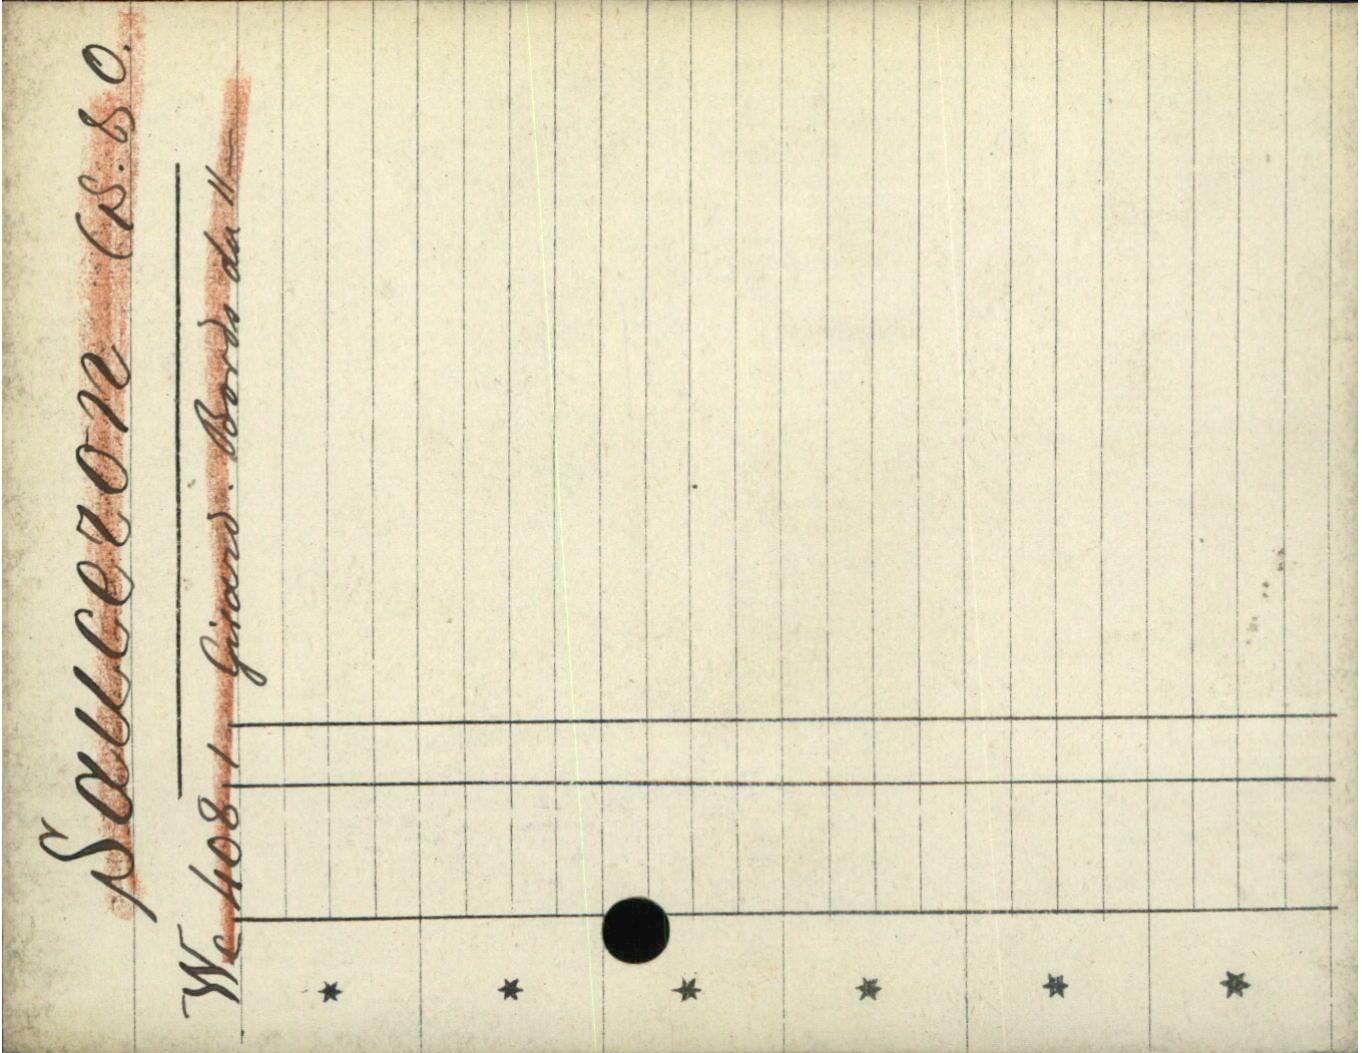 Sauceron (S. & O.
We 408 1 Girard. Bords du "—